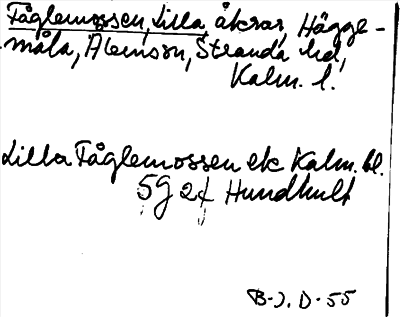 Fåglemossen, Lilla, åkrar, Hägge-
måla, Ålemson, Stranda hd,
Kalm. l.
Lilla Fåglemossen ek Kalm. bl.
5g 2f Hundhult
B-J. D-55